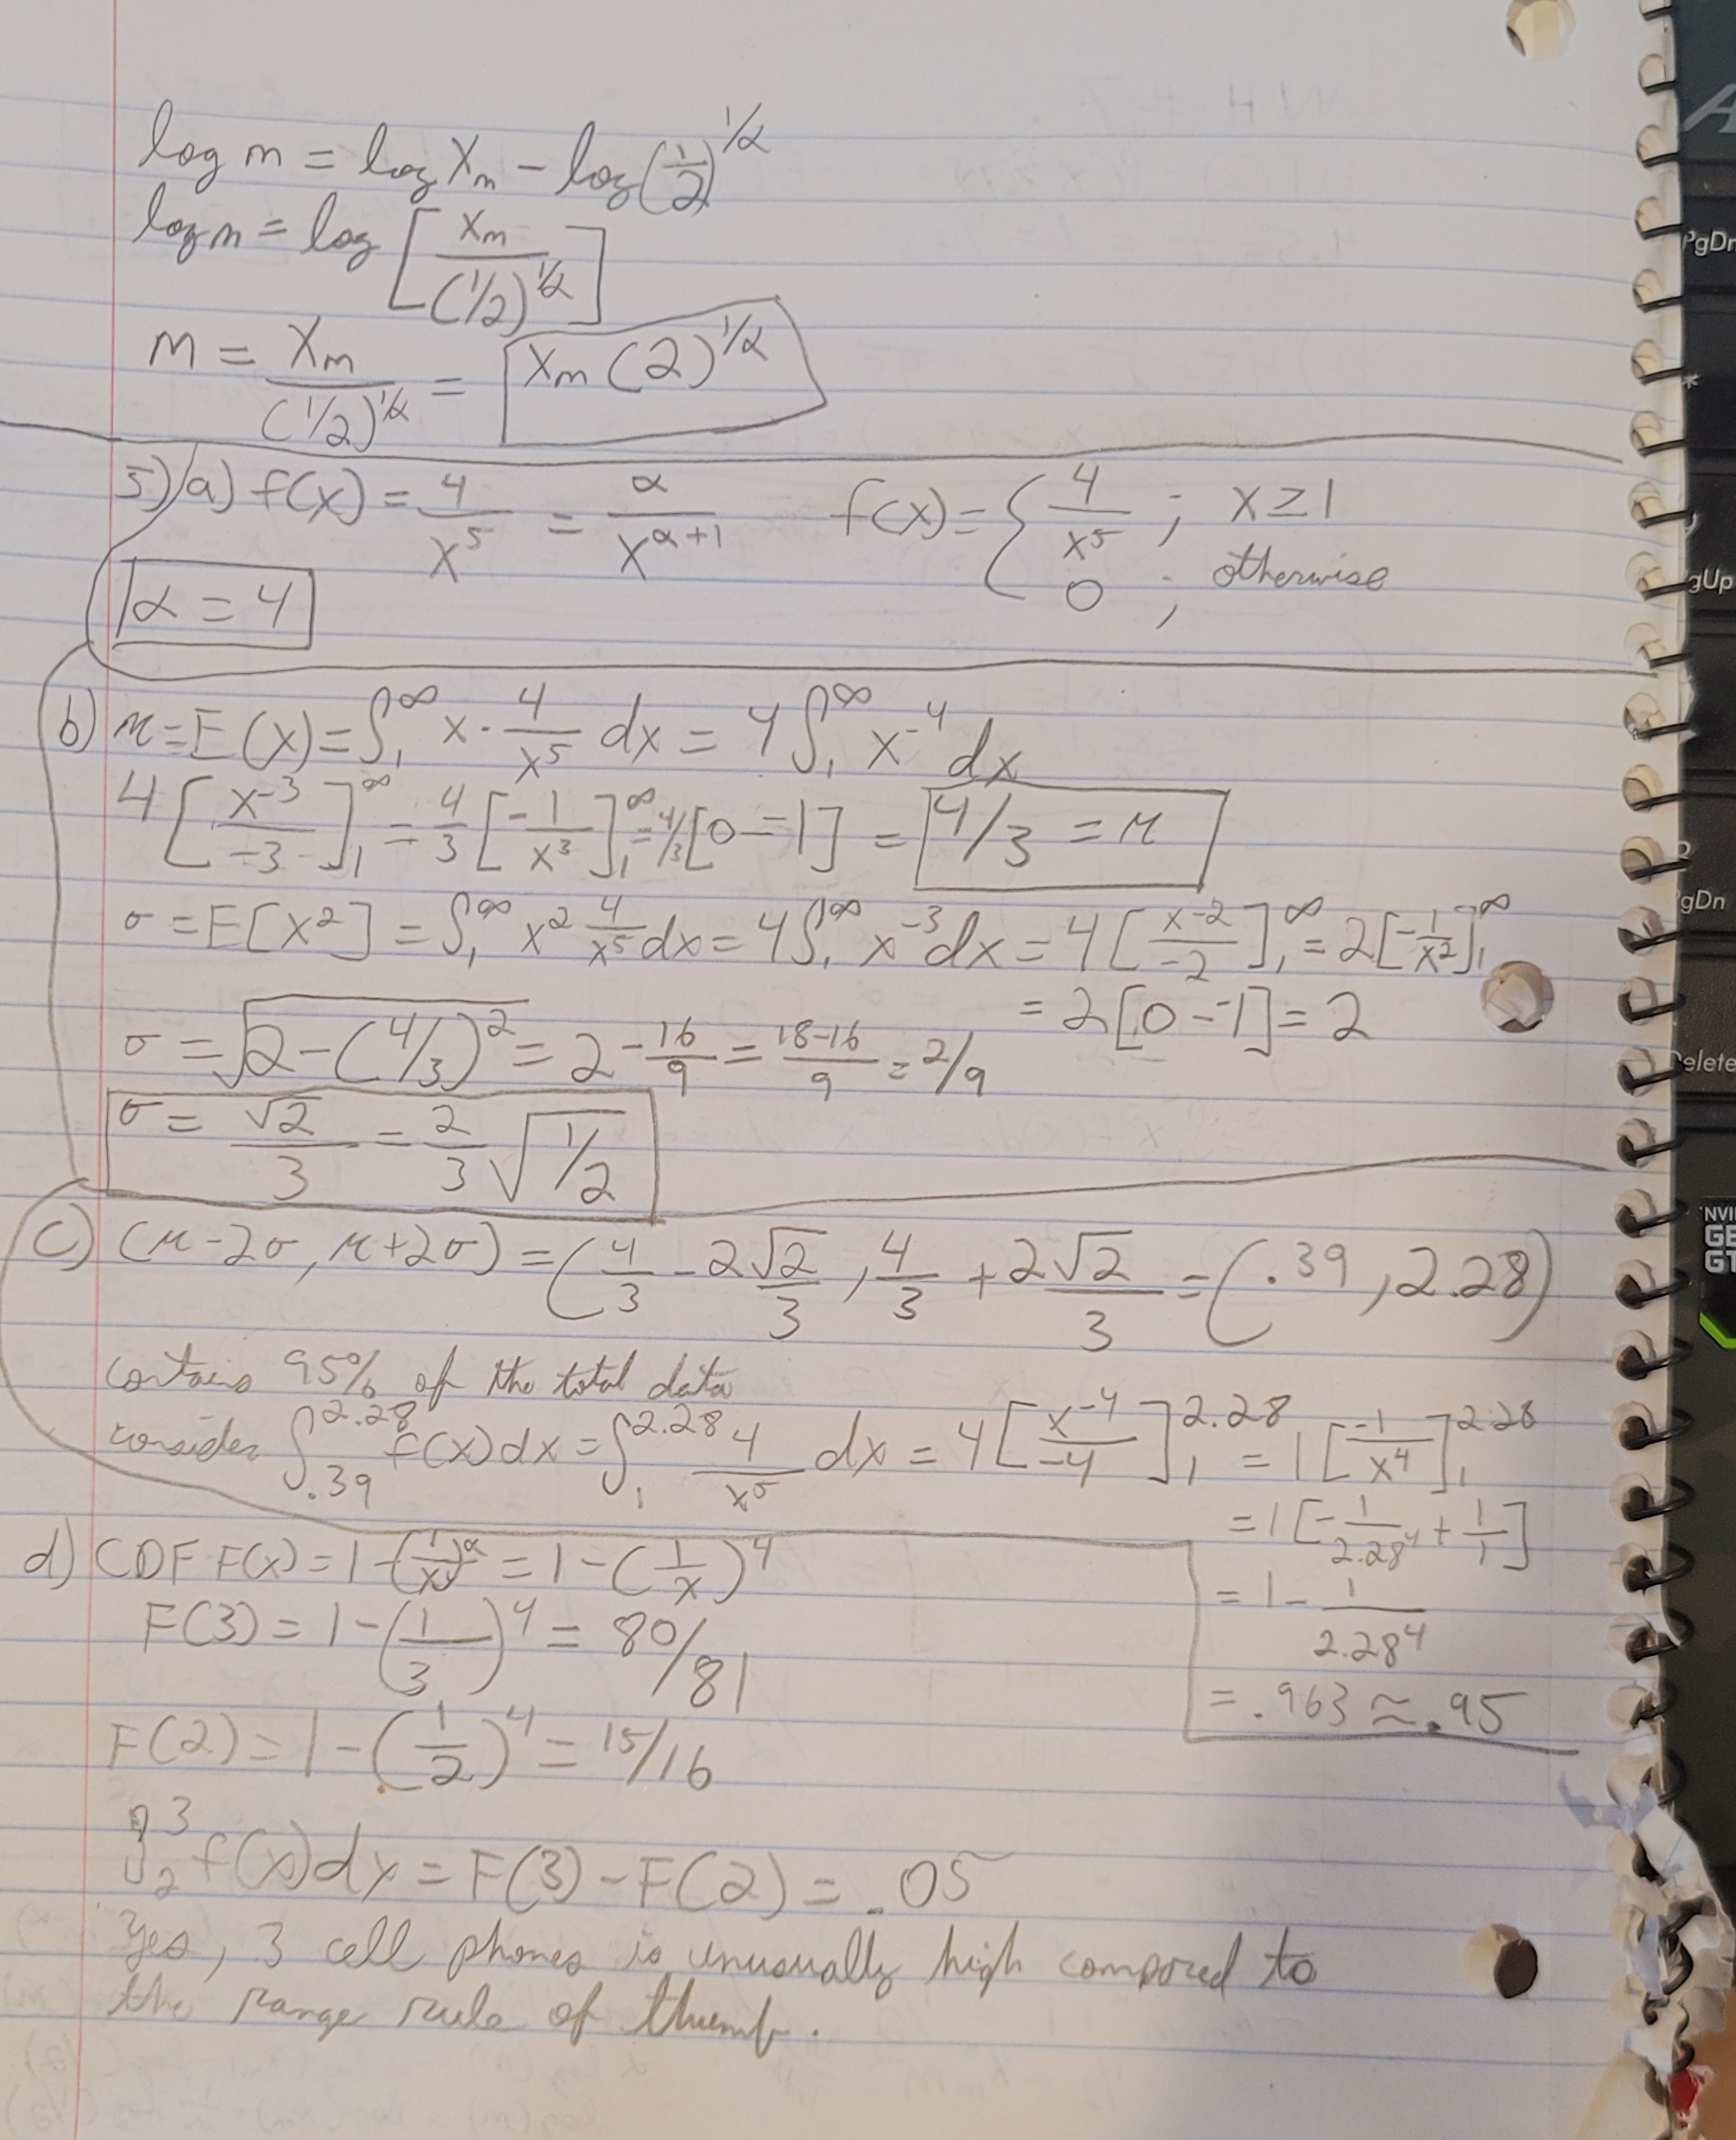 log m = log Xm - log(1/2)^1/α
log m = log [Xm / (1/2)^1/α]
m = Xm / (1/2)^1/α = Xm (2)^1/α
5) a) f(x) = 4/x^5 = α/x^(α+1) f(x) = { 4/x^5 ; x ≥ 1
0 ; otherwise
α = 4
b) μ = E(x) = ∫₁^∞ x · 4/x^5 dx = 4 ∫₁^∞ x^-4 dx
4 [x^-3/-3]₁^∞ = 4/3 [-1/x^3]₁^∞ = 4/3 [0 - -1] = 4/3 = μ
σ = E[X^2] = ∫₁^∞ x^2 4/x^5 dx = 4 ∫₁^∞ x^-3 dx = 4 [x^-2/-2]₁^∞ = 2 [-1/x^2]₁^∞
= 2 [0 - -1] = 2
σ = √(2 - (4/3)^2) = 2 - 16/9 = 18-16/9 = 2/9
σ = √2/3 = 2/3 √(1/2)
c) (μ - 2σ, μ + 2σ) = (4/3 - 2√2/3, 4/3 + 2√2/3 = (.39, 2.28)
contains 95% of the total data
consider ∫.39^2.28 f(x) dx = ∫₁^2.28 4/x^5 dx = 4 [x^-4/-4]₁^2.28 = 1 [-1/x^4]₁^2.28
= 1 [-1/2.28^4 + 1/1]
= 1 - 1/2.28^4
= .963 ≈ .95
d) CDF F(x) = 1 - (1/x)^α = 1 - (1/x)^4
F(3) = 1 - (1/3)^4 = 80/81
F(2) = 1 - (1/2)^4 = 15/16
∫₂^3 f(x) dx = F(3) - F(2) = .05
Yes, 3 cell phones is unusually high compared to
the range rule of thumb.
PgDn
*
gUp
gDn
elete
NVI
GE
GT